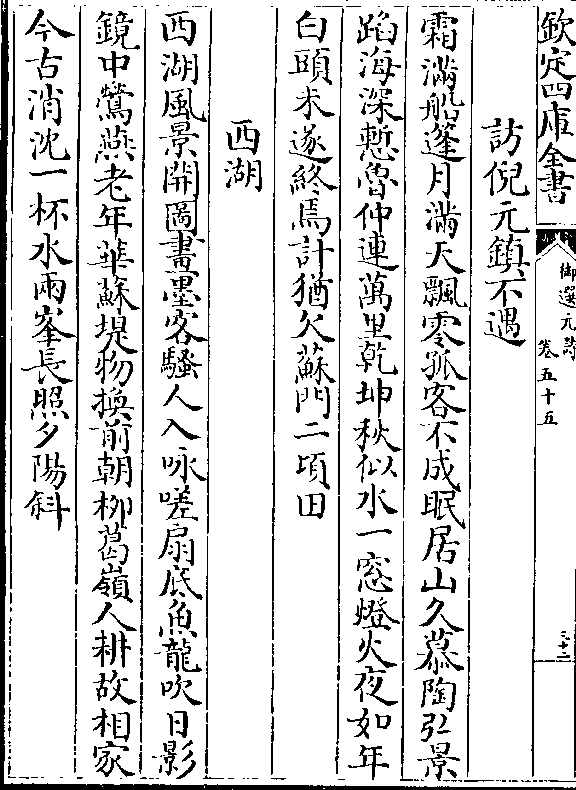 欽定四庫全書
御選元詩
卷五十五
三十二
訪倪元鎮不遇
霜滿船篷月滿天飄零孤客不成眠居山久慕陶弘景
蹈海深慙魯仲連萬里乾坤秋似水一窓燈火夜如年
白頭未遂終焉計猶欠蘇門二頃田
西湖
西湖風景開圖畫墨客騷人入咏嗟扇底魚龍吹日影
鏡中鶯燕老年華蘇堤物換前朝柳葛嶺人耕故相家
今古消沈一杯水兩峯長照夕陽斜